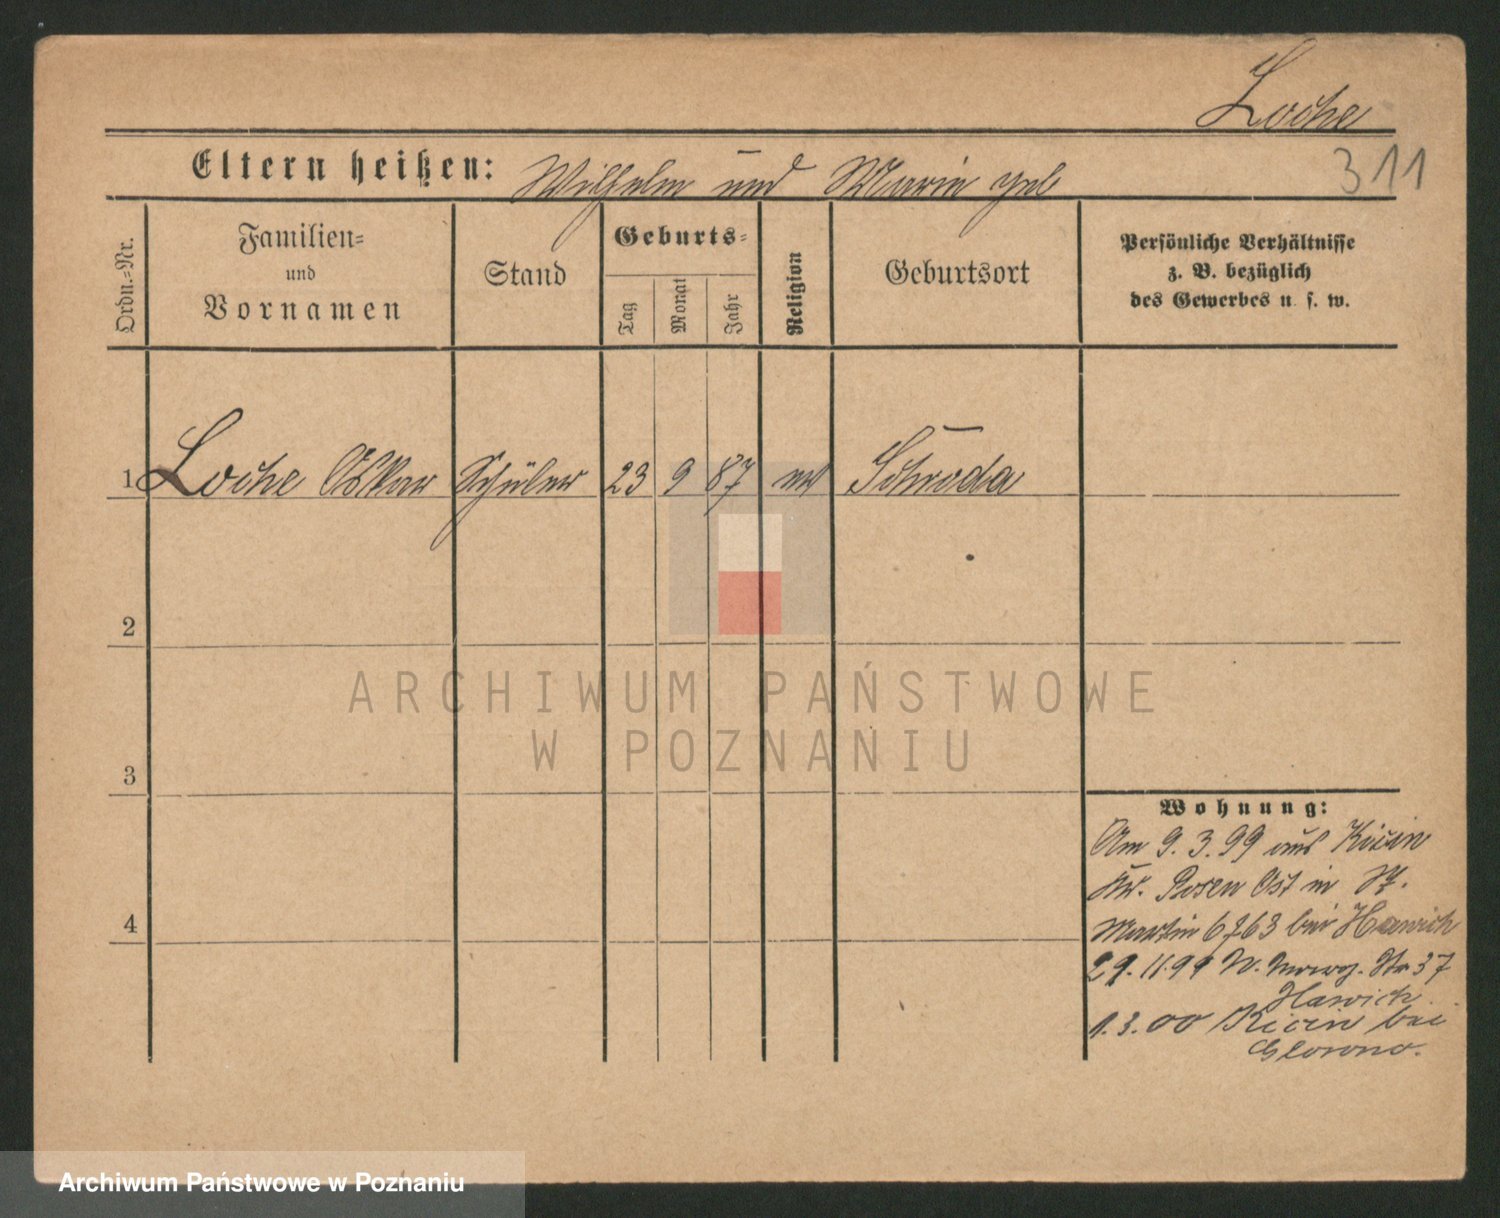 Loche
Eltern heißen: Wilhelm und Marie geb
311
Ordn.=Nr.
Familien=
und
Vornamen
Stand
Geburts=
Tag
Monat
Jahr
Religion
Geburtsort
Persönliche Verhältnisse
z. B. bezüglich
des Gewerbes u. s. w.
1 Loche Oskar Schüler 23 9 87 ev Schroda
2
3
4
ARCHIWUM PAŃSTWOWE
W POZNANIU
Wohnung:
Am 9.3.99 aus Kicin
Kr. Posen Ost in St.
Martin bei Hawich
29.11.99 Str 37
Hawich
1.3.00 Kicin bei
Archiwum Państwowe w Poznaniu